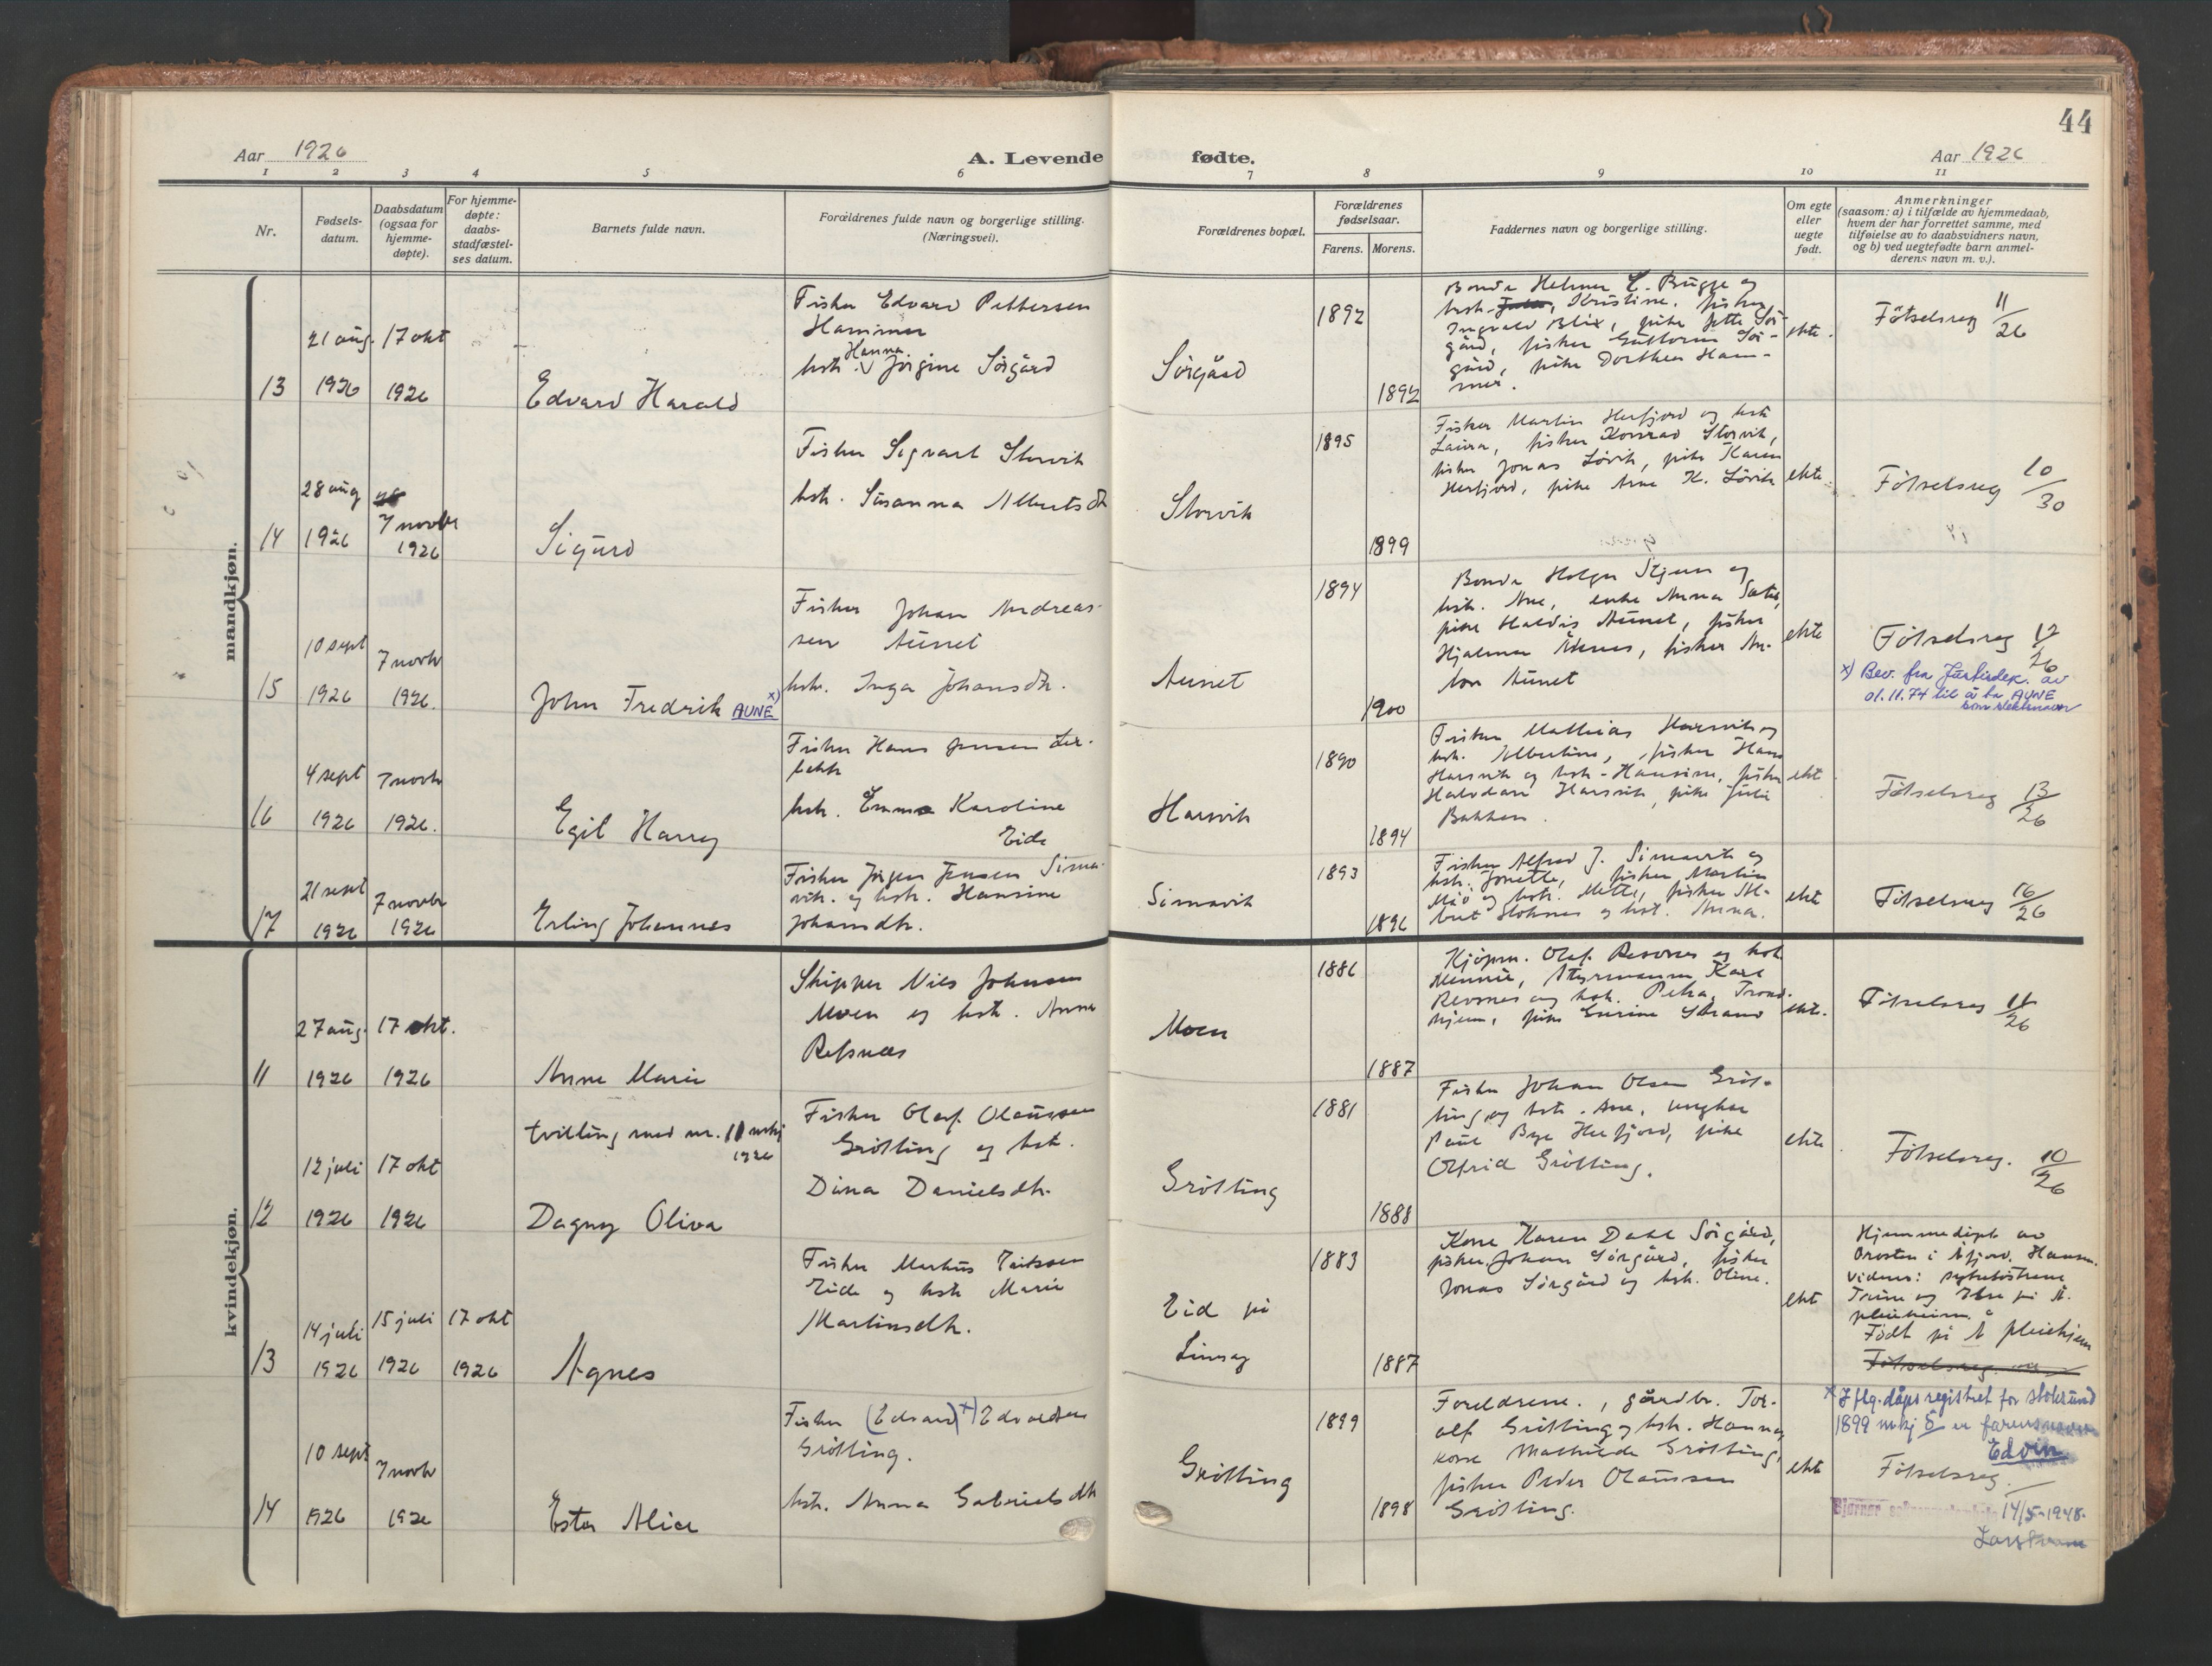 44
Aar 1926
A. Levende fødte.
Aar 1926
1 2 3 4 5 6 7 8 9 10 11
Nr.
Fødsels-
datum.
Daabsdatum
(ogsaa for
hjemme-
døpte).
For hjemme-
døpte:
daabs-
stadfæstel-
ses datum.
Barnets fulde navn.
Forældrenes fulde navn og borgerlige stilling.
(Næringsvei).
Forældrenes bopæl.
Forældrenes
fødselsaar.
Farens. Morens.
Faddernes navn og borgerlige stilling.
Om egte
eller
uegte
født.
Anmerkninger
(saasom: a) i tilfælde av hjemmedaab,
hvem der har forrettet samme, med
tilføielse av to daabsvidners navn,
og b) ved uegtefødte barn anmel-
derens navn m. v.).
mandkjøn.
13
21 aug.
1926
17 okt
1926
Edvard Harald
Fisker Edvard Pettersen
Hammer
hstr. Hanna Jörgine Sörgård
Sörgård
1892
1892
Bonde Helmer E. Brügge og
hstr. Kristine, fisker
Ingvald Blix, pike Jette Sör-
gård, fisker Guttorm Sör-
gård, pike Dorthea Ham-
mer.
ekte.
Fötselsreg 11/26
14
28 aug
1926
7 novbr
1926
Sigurd
Fisker Sigvart Storvik
hstr. Susanna Albertsdtr
Storvik
1895
1899
Fisker Martin Herfjord og hstr
Laura, fisker Konrad Storvik,
fisker Jonas Lövik, pike Karen
Herfjord, pike Arne K. Lövik
ekte.
Fötselsreg 10/30
15
10 sept
1926
7 novbr
1926.
John Fredrik AUNE x)
Fisker Johan Andreas-
sen Aunet
hstr. Inga Johansdtr.
Aunet
1894
1900
Bonde Holger Stjern og
hstr. Ane, enke Anna Sæter,
pike Haldis Aunet, fisker
Hjalmar Aunes, fisker An-
ton Aunet
ekte
Fötselsreg 12/26
x) Bev. fra Justisdep. av
01.11.74 til å ta AUNE
som slektsnavn
16
4 sept
1926
7 novbr
1926.
Egil Harry
Fisker Hans Jensen Ler-
bekk
hstr. Emma Karoline
Eide
Harsvik
1890
1894
Fisker Mathias Harsvik og
hstr. Albertine, fisker Hans
Harsvik og hstr. Hansine, fisker
Halvdan Harsvik, pike Julie
Bakken.
ekte
Fötselsreg 13/26
17
21 sept
1926
7 novbr
1926
Erling Johannes
Fisker Jörgen Jensen Sima-
vik. og hstr. Hansine
Johansdtr.
Simavik
1893
1896
Fisker Alfred J. Simavik og
hstr. Jonette, fisker Martin
Mjö og hstr. Mette, fisker Al-
bert Hoknes og hst. Anna.
ekte
Fötselsreg 16/26
kvindekjøn.
11
27 aug.
1926
17 okt.
1926
Anne Marie
Skipper Nils Johnsen
Moen og hstr. Anna
Refsnæs
Moen
1886
1887
Kjöpm. Olaf Revsnes og hst.
Minnie, Styrmann Karl
Revsnes og hstr. Petra, Trond-
hjem, pike Gurine Strand
ekte.
Fötselsreg 11/26
12
12 juli
1926
17 okt
1926
tvilling med nr. 11 mkj
1926
Dagny Oliva
Fisker Olaf Olaussen
Grötting og hst.
Dina Danielsdtr.
Grötting
1881
1888
Fisker Johan Olsen Gröt-
ting og hstr. Ane, ungkar
Paul Bye Herfjord, pike
Olfrid Grötting.
ekte
Fötselsreg. 10/26
13
14 juli
1926
15 juli
1926
17 okt
1926
Agnes
Fisker Markus Eidssen
Eide og hstr Marie
Martinsdtr.
Eid på
Linesøy
1883
1887
Kone Karen Dahl Sörgård,
fisker Johan Sörgård, fisker
Jonas Sörgård og hstr. Oline.
ekte
Hjemmedöpt av
Presten i Åfjord. Hansen.
Vidner: sykesöstrene
på Å.
pleiehjem.
Født på Å pleiehjem
14
10 sept
1926
7 novbr
1926
Ester Alice
Fisker (Edvard) x) Edvardsen
Grötting.
hstr. Anna Gabrielsdtr
Grötting
1899
1898
Foreldrene, gårdbr. Tor-
alf Grötting og hstr. Hanna,
kone Mathilde Grötting,
fisker Peder Olaussen
Grötting.
ekte
x Iflg. dåpsregistret for Stoksund
1899 mkj 5 er farens navn
Edvin
Fötselsreg.
Bjørnør sokneprestembete 14/5-1948.